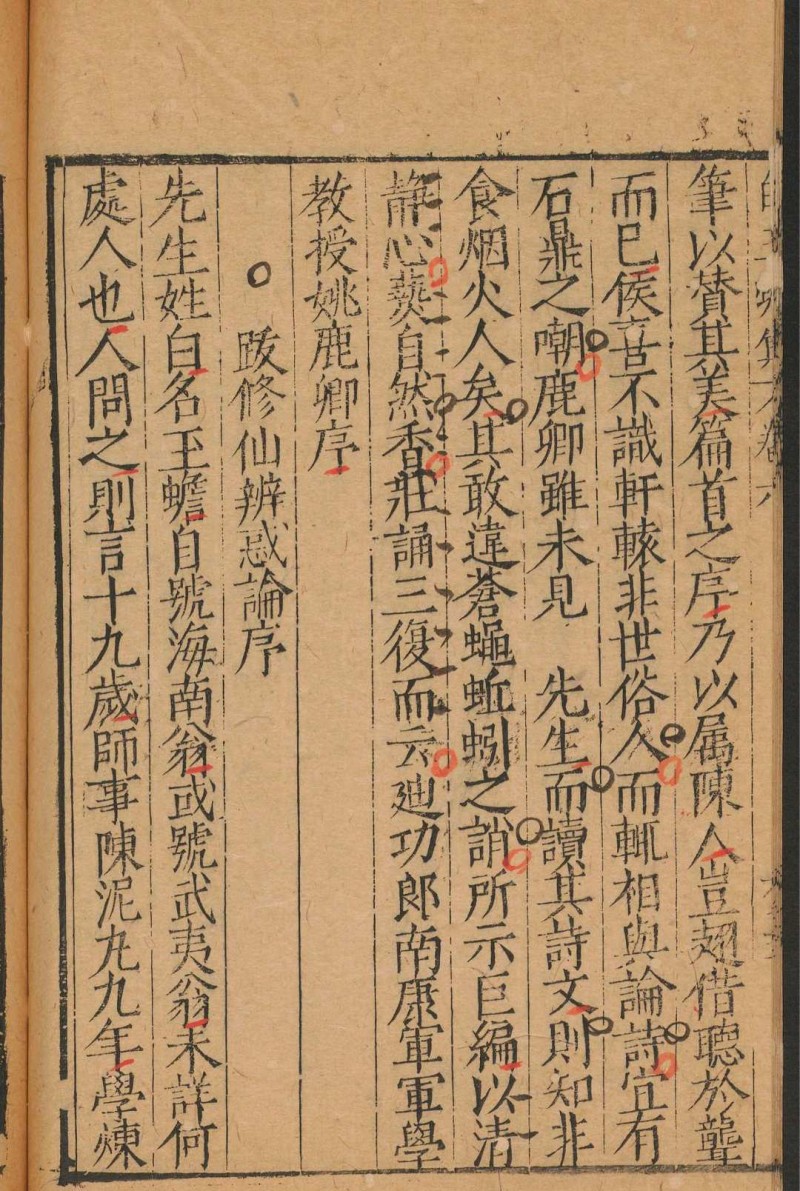 筆以賛其美篇首之序乃以属陳人豈趐借聽於聾
而已侯喜不識軒轅非世俗人而輒相與論詩宜有
石鼎之嘲鹿卿雖未見　先生而讀其詩文則知非
食烟火人矣其敢違蒼蠅蚯蚓之誚所示巨編以清
靜心爇自然香莊誦三復而云廸功郎南康軍軍學
教授姚鹿卿序
○　跋修仙辨惑論序
先生姓白名玉蟾自號海南翁或號武夷翁未詳何
處人也人問之則言十九歲師事陳泥丸九年學煉